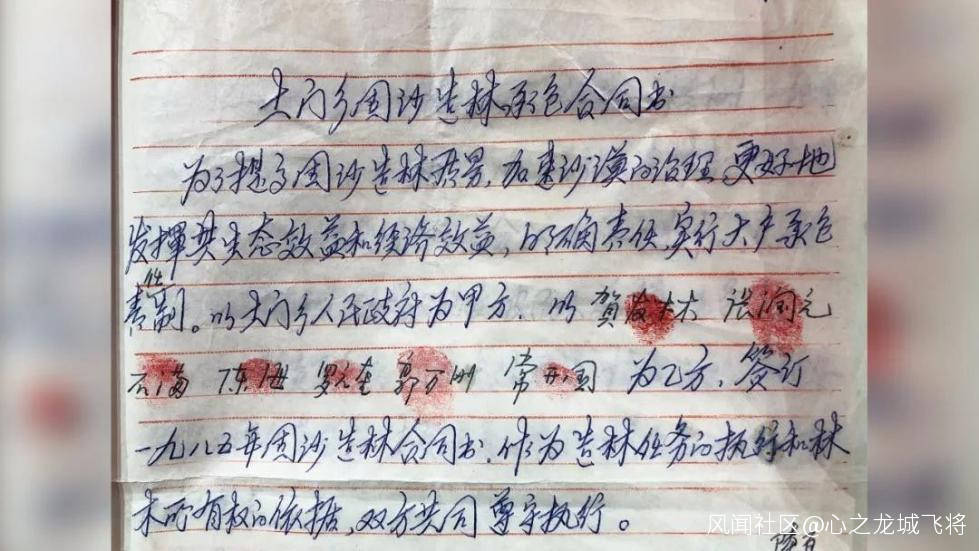 土门乡固沙造林承包合同书
为了提高固沙造林质量,加速沙漠的治理,更好地
发挥其生态效益和经济效益,明确责任,实行大户承包
责任制。以土门乡人民政府为甲方,以 贺发林 张润元
石满 陈海 罗元奎 郭万刚 常开国 为乙方,签订
一九八五年固沙造林合同书,作为造林任务的执行和林
木所有权的依据,双方共同尊守执行。
风闻社区@心之龙城飞将